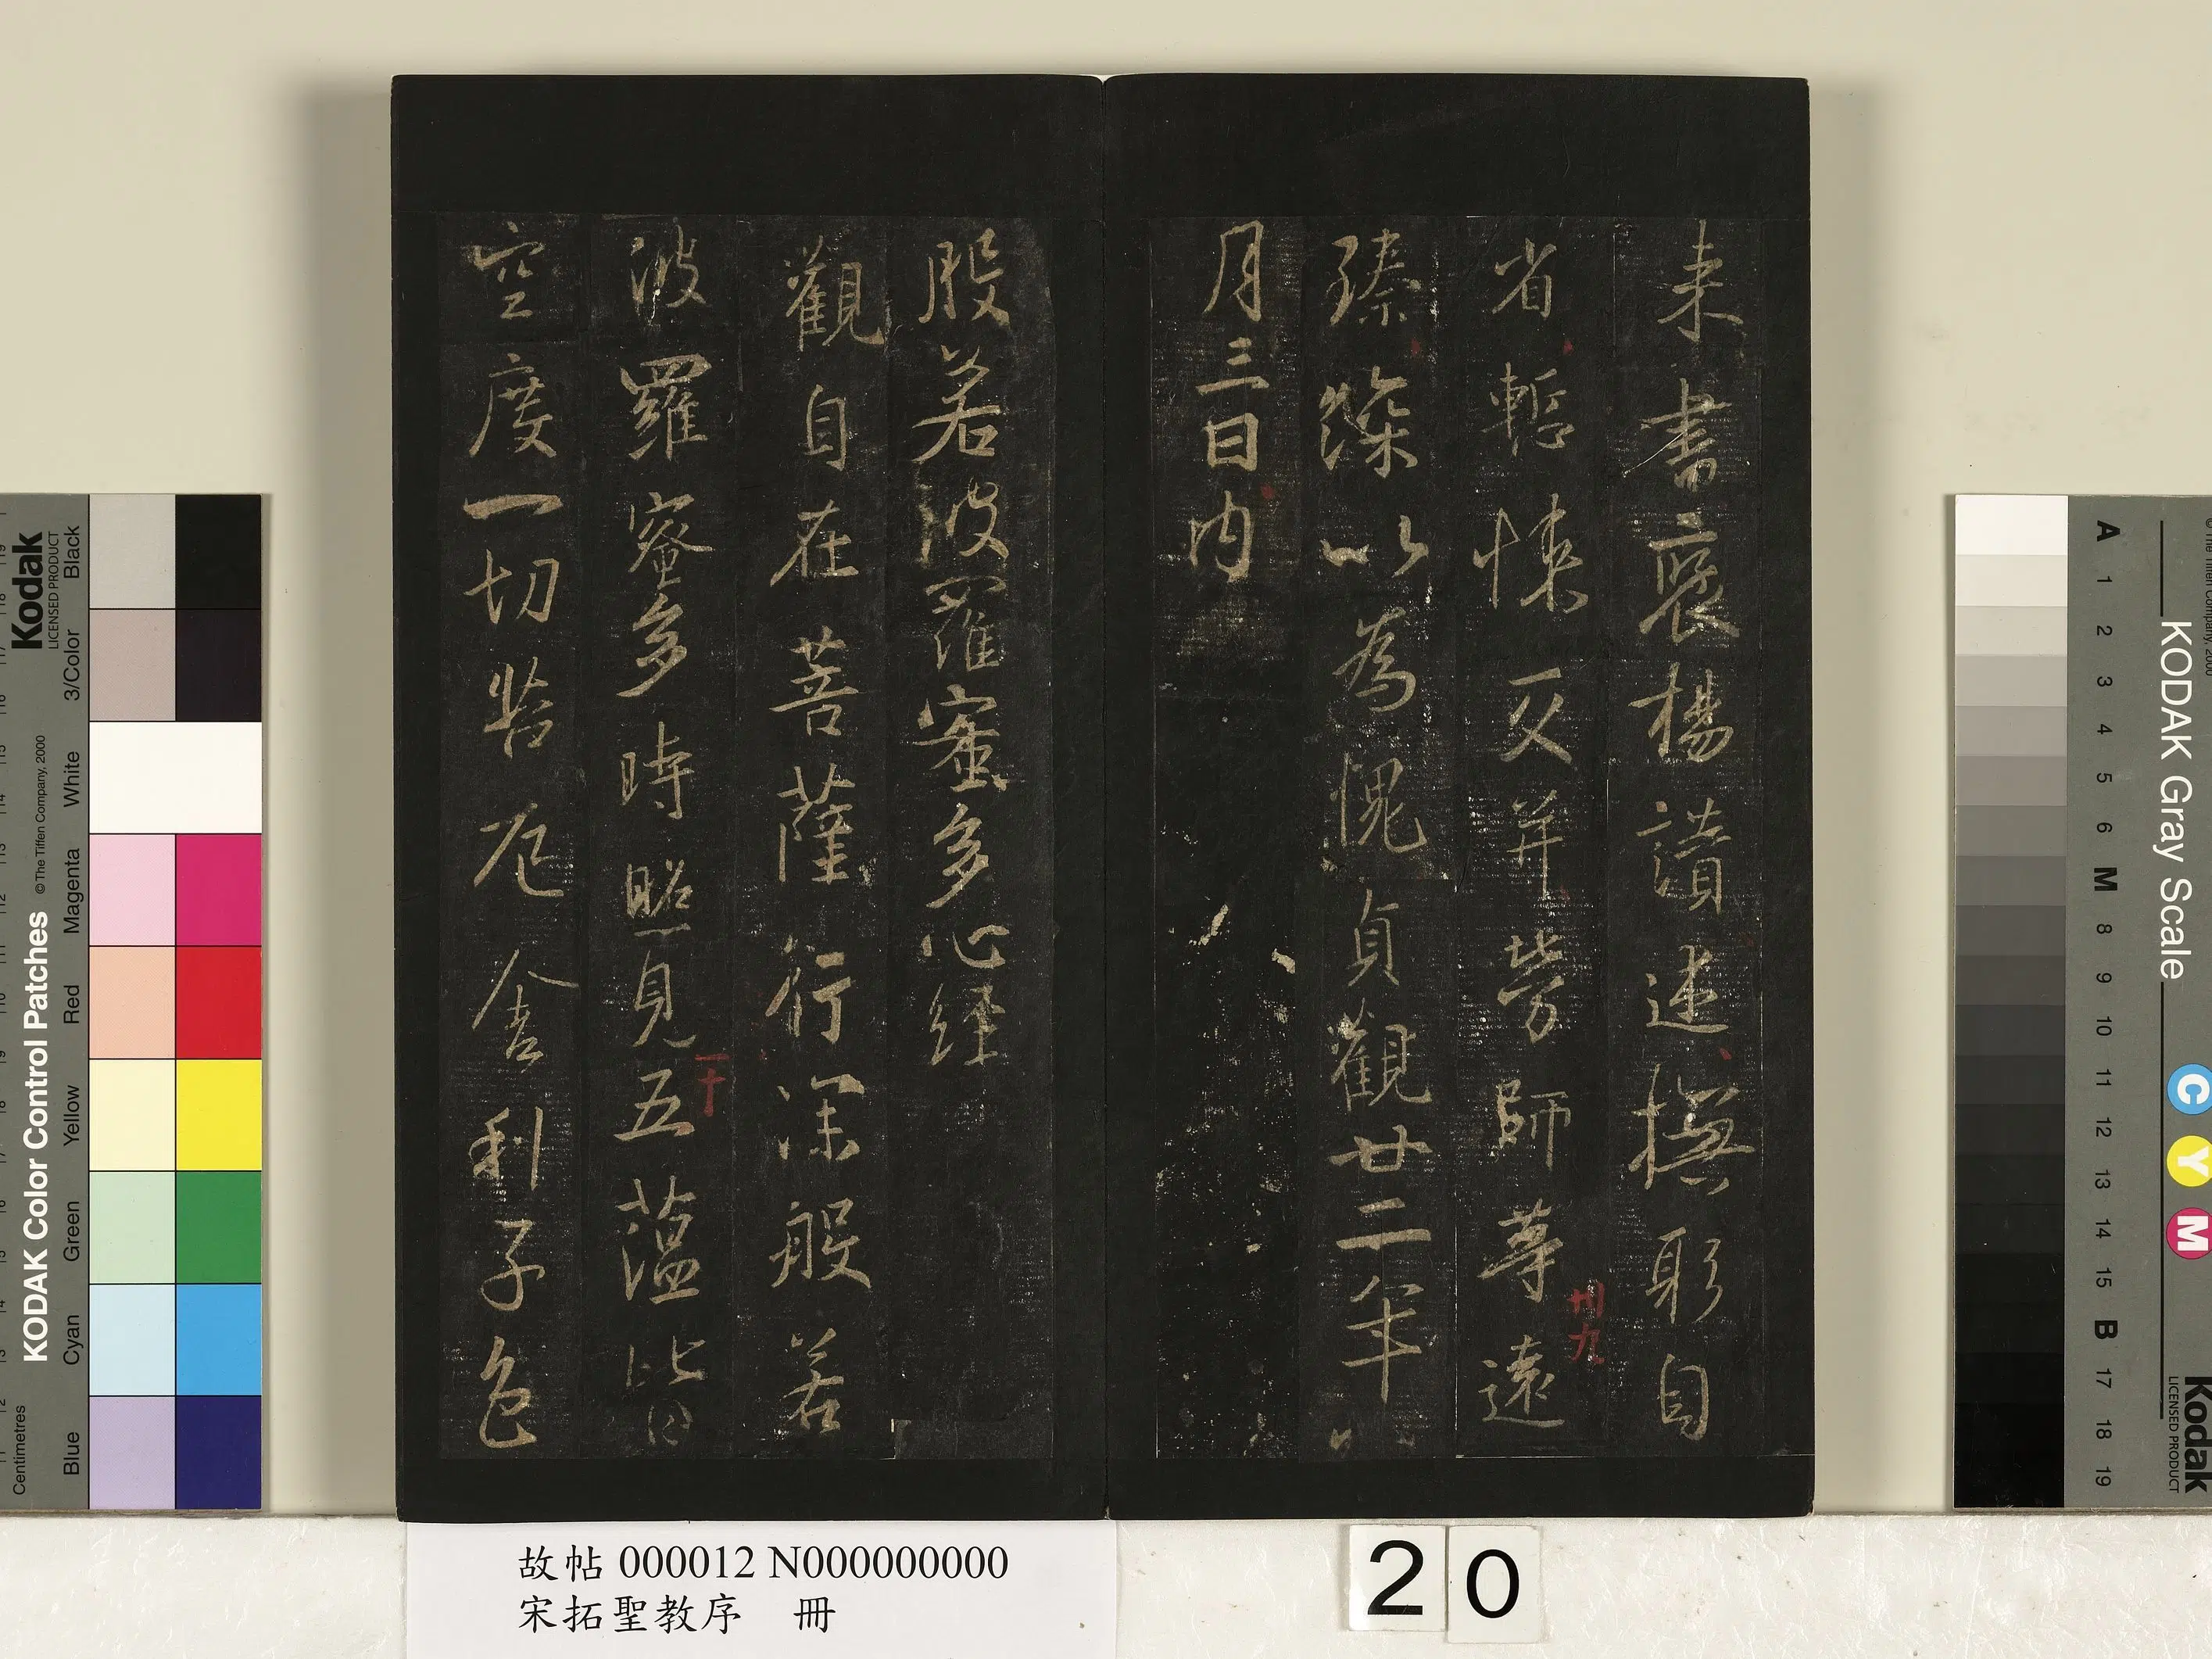 来書褒楊讃述撫躬自
省慙悚交并勞師等遠
臻深以為愧貞觀廿二年八
月三日内
般若波羅蜜多心經
觀自在菩薩行深般若
波羅蜜多時照見五蘊皆
空度一切苦厄舍利子色
卅九
一十
故帖 000012 N000000000
宋拓聖教序 冊
20
KODAK Color Control Patches
© The Tiffen Company, 2000
Kodak
LICENSED PRODUCT
Centimetres
Blue
Cyan
Green
Yellow
Red
Magenta
White
3/Color
Black
KODAK Gray Scale
Kodak
LICENSED PRODUCT
C
Y
M
A
1
2
3
4
5
6
M
8
9
10
11
12
13
14
15
B
17
18
19